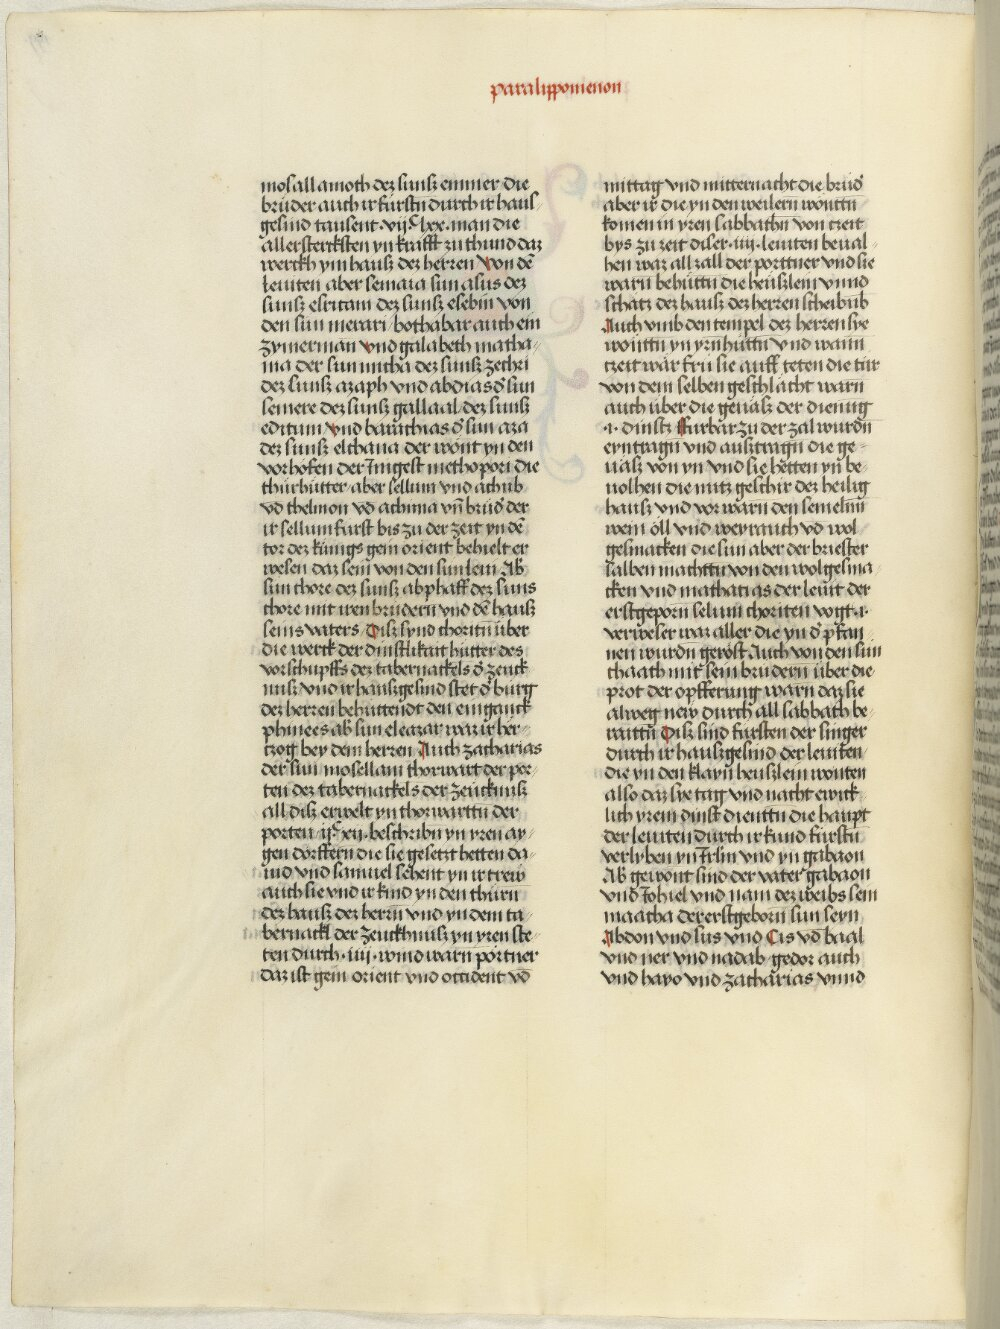 paralipponienon
mosallamoth dez sunsz emmer die
brüder auch ir fürstn durch ir haus⸗
gesind tausent · vijᶜ lxx · man die
allerstercksten yn krafft zu thund daz
werckh ym hausz dez herzen Von dē
leuiten aber semaia sun asus dez
sunsz esricam dez sunsz esebin von
den sun merari / bothabar auch ein
zymerman vnd galabeth matha⸗
nia der sun micha dez sunsz zechri
dez sunsz azaph vnd abdias ď sun
semere dez sunsz gallaal dez sunsz
editum vnd barathias ď sun aza
dez sunsz elchana der wont yn den
vorhöfen der Jmgest methopori die
thürhütter aber sellum vnd achub
vō thelmon vō achima vn̄ brüď der
ir sellum fürst bis zu der zeit yn dē
tor dez künigs gein orient behielt er
wesen daz sein von den sun leui Ab
sun chore dez sunsz abphaff dez suns
chore mit iren brüdern vnd dē hausz
seins vaters / Disz synd choritn über
die werck der dinstlikait hütter des
vorschupffs dez tabernackels ď zeuck
nusz vnd ir hauszgesind stet ď burg
dez herzen behüttendt den eingauck
phinees ab sun eleazar waz ir her⸗
tzog bey dem herzen Auch zacharias
der sun mosellam thorwart der por⸗
ten dez tabernackels der zeucknusz
all disz erwelt yn thorwarttn der
porten · ijᶜ xij · beschribn yn yren ay⸗
gen dörffern die sie gesetzt hetten da⸗
uid vnd samuel sehent yn ir trew
auch sie vnd ir kind yn den thürn
dez hausz dez herzn vnd yn dem ta⸗
bernackl der zeuckhnusz yn yren ste⸗
ten durch · iiij · wind warn portner
daz ist gein orient vnd occident vō
mittag vnd mitternacht die brüď
aber ir die yn den weilern wontn
komen in yren sabbathn von tzeit
bys zu zeit diser · iiij · leuiten beual⸗
hen waz all zall der porttner vnd sie
warn behüttn die heuszlein vnnd
schätz dez hausz dez herzen scheibub
Auch vmb den tempel dez herzen sye
wonttn yn yrn hüttn Vnd wann
tzeit wär frü sie auff teten die tür
von dem selben geschlächt warn
auch über die geuäsz der dienūg
· 1 · dinstz ffürbar zu der zal wurdn
eyntragn vnd ausztragn die ge⸗
uäsz von yn vnd sie hetten yn̄ be⸗
uolhen die nutz geschir dez heilig
hausz vnd vor warn den semelm̄
wein öll vnd weyrauch vō wol
gesmacken die sun aber der briester
salben machttn von den wolgesma⸗
cken vnd mathatias der leuit der
erstgeporn selum choriten vogt · 1 ·
verweser waz aller die yn ď pfan⸗
nen wurdn geröst Auch von den sun
chaath mit sein brüdern über die
prot der opfferung warn daz sie
alweg new durch all sabbath be⸗
raittn Disz sind fürsten der singer
durch ir hauszgesind der leuiten
die yn den klayn̄ heuszlein wonten
also daz sye tag vnd nacht ewick⸗
lich yrem dinst dienttn die haupt
der leuiten durch ir kund fürstn
verlyben yn Jrl̄m vnd yn gabaon
Ab gewont sind der vater gabaon
vnd Johiel vnd nam dez weibs sein
maacha der erstgeborn sun seyn
Abdon vnd sus vnd Cis vō baal
vnd ner vnd nadab gedor auch
vnd hayo vnd zacharias vnnd